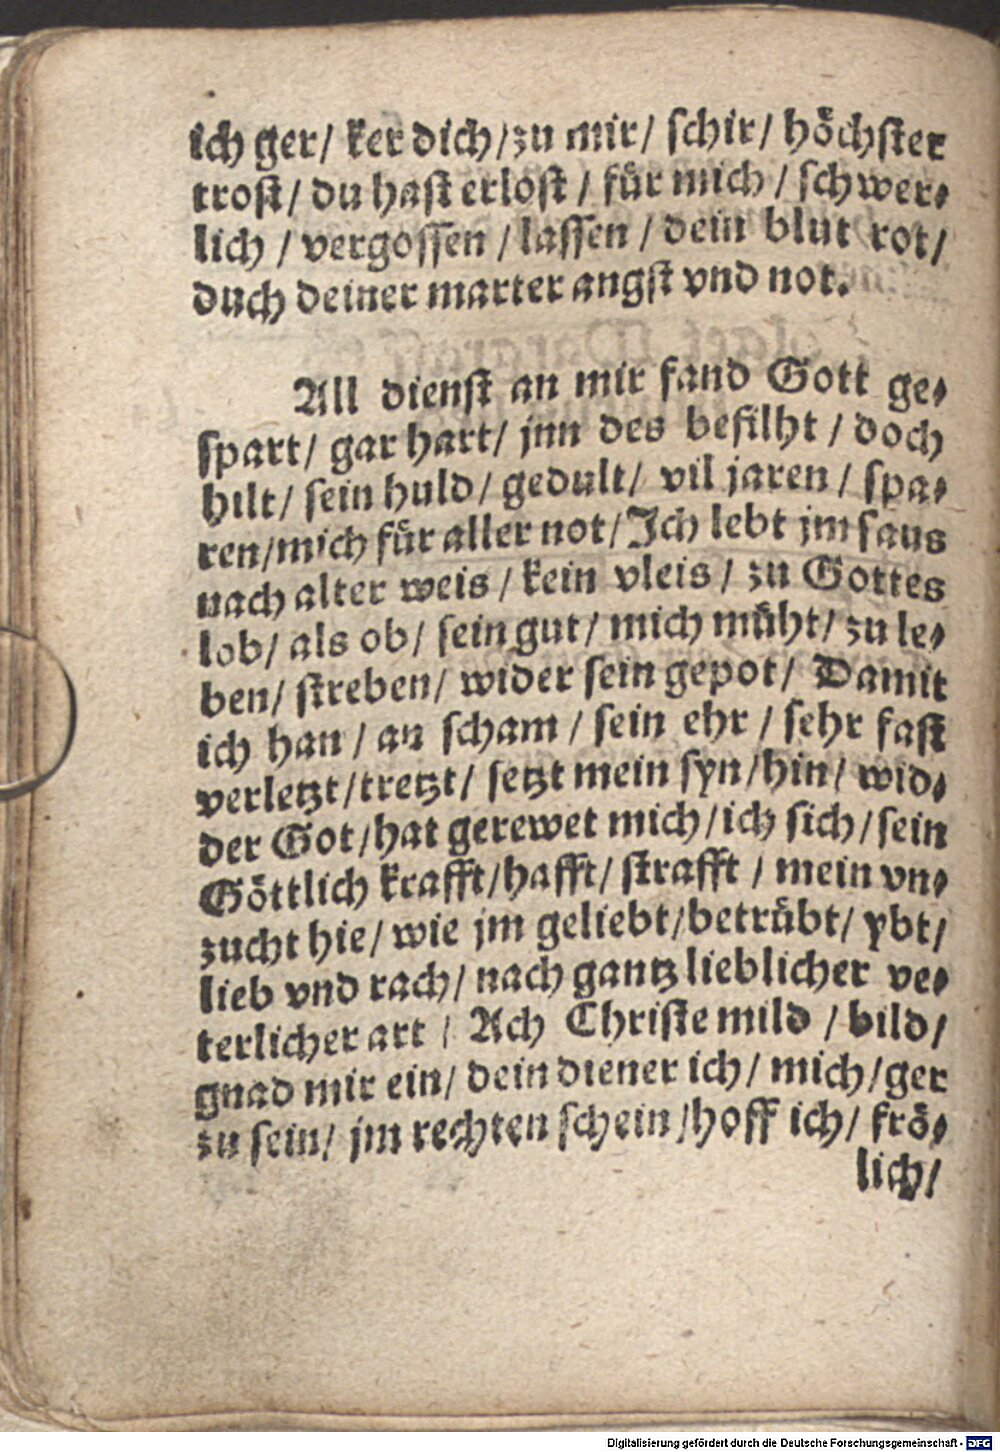 ich ger/ ker dich/zu mir/ schir/ höchster
trost/ du hast erlost / für mich / schwer⸗
lich / vergossen / lassen / dein blut rot/
duch deiner marter angst vnd not.
All dienst an mir fand Gott ge⸗
spart/ gar hart/ jnn des befilht / doch
hilt/ sein huld/ gedult/ vil jaren / spa⸗
ren/mich für aller not/Ich lebt jm saus
nach alter weis / kein vleis / zu Gottes
lob/ als ob/ sein gut/ mich müht/ zu le⸗
ben/ streben/ wider sein gepot/ Damit
ich han / an scham / sein ehr / sehr fast
verletzt/tretzt/ setzt mein syn/hin/ wid⸗
der Got/hat gerewet mich/ich sich/sein
Göttlich krafft/hafft/ strafft / mein vn⸗
zucht hie/ wie jm geliebt/betrübt/ ybt/
lieb vnd rach/ nach gantz lieblicher ve⸗
terlicher art / Ach Christe mild / bild/
gnad mir ein/ dein diener ich/ mich/ger
zu sein/ jm rechten schein/hoff ich/ frö⸗
lich/
Digitalisierung gefördert durch die Deutsche Forschungsgemeinschaft - DFG